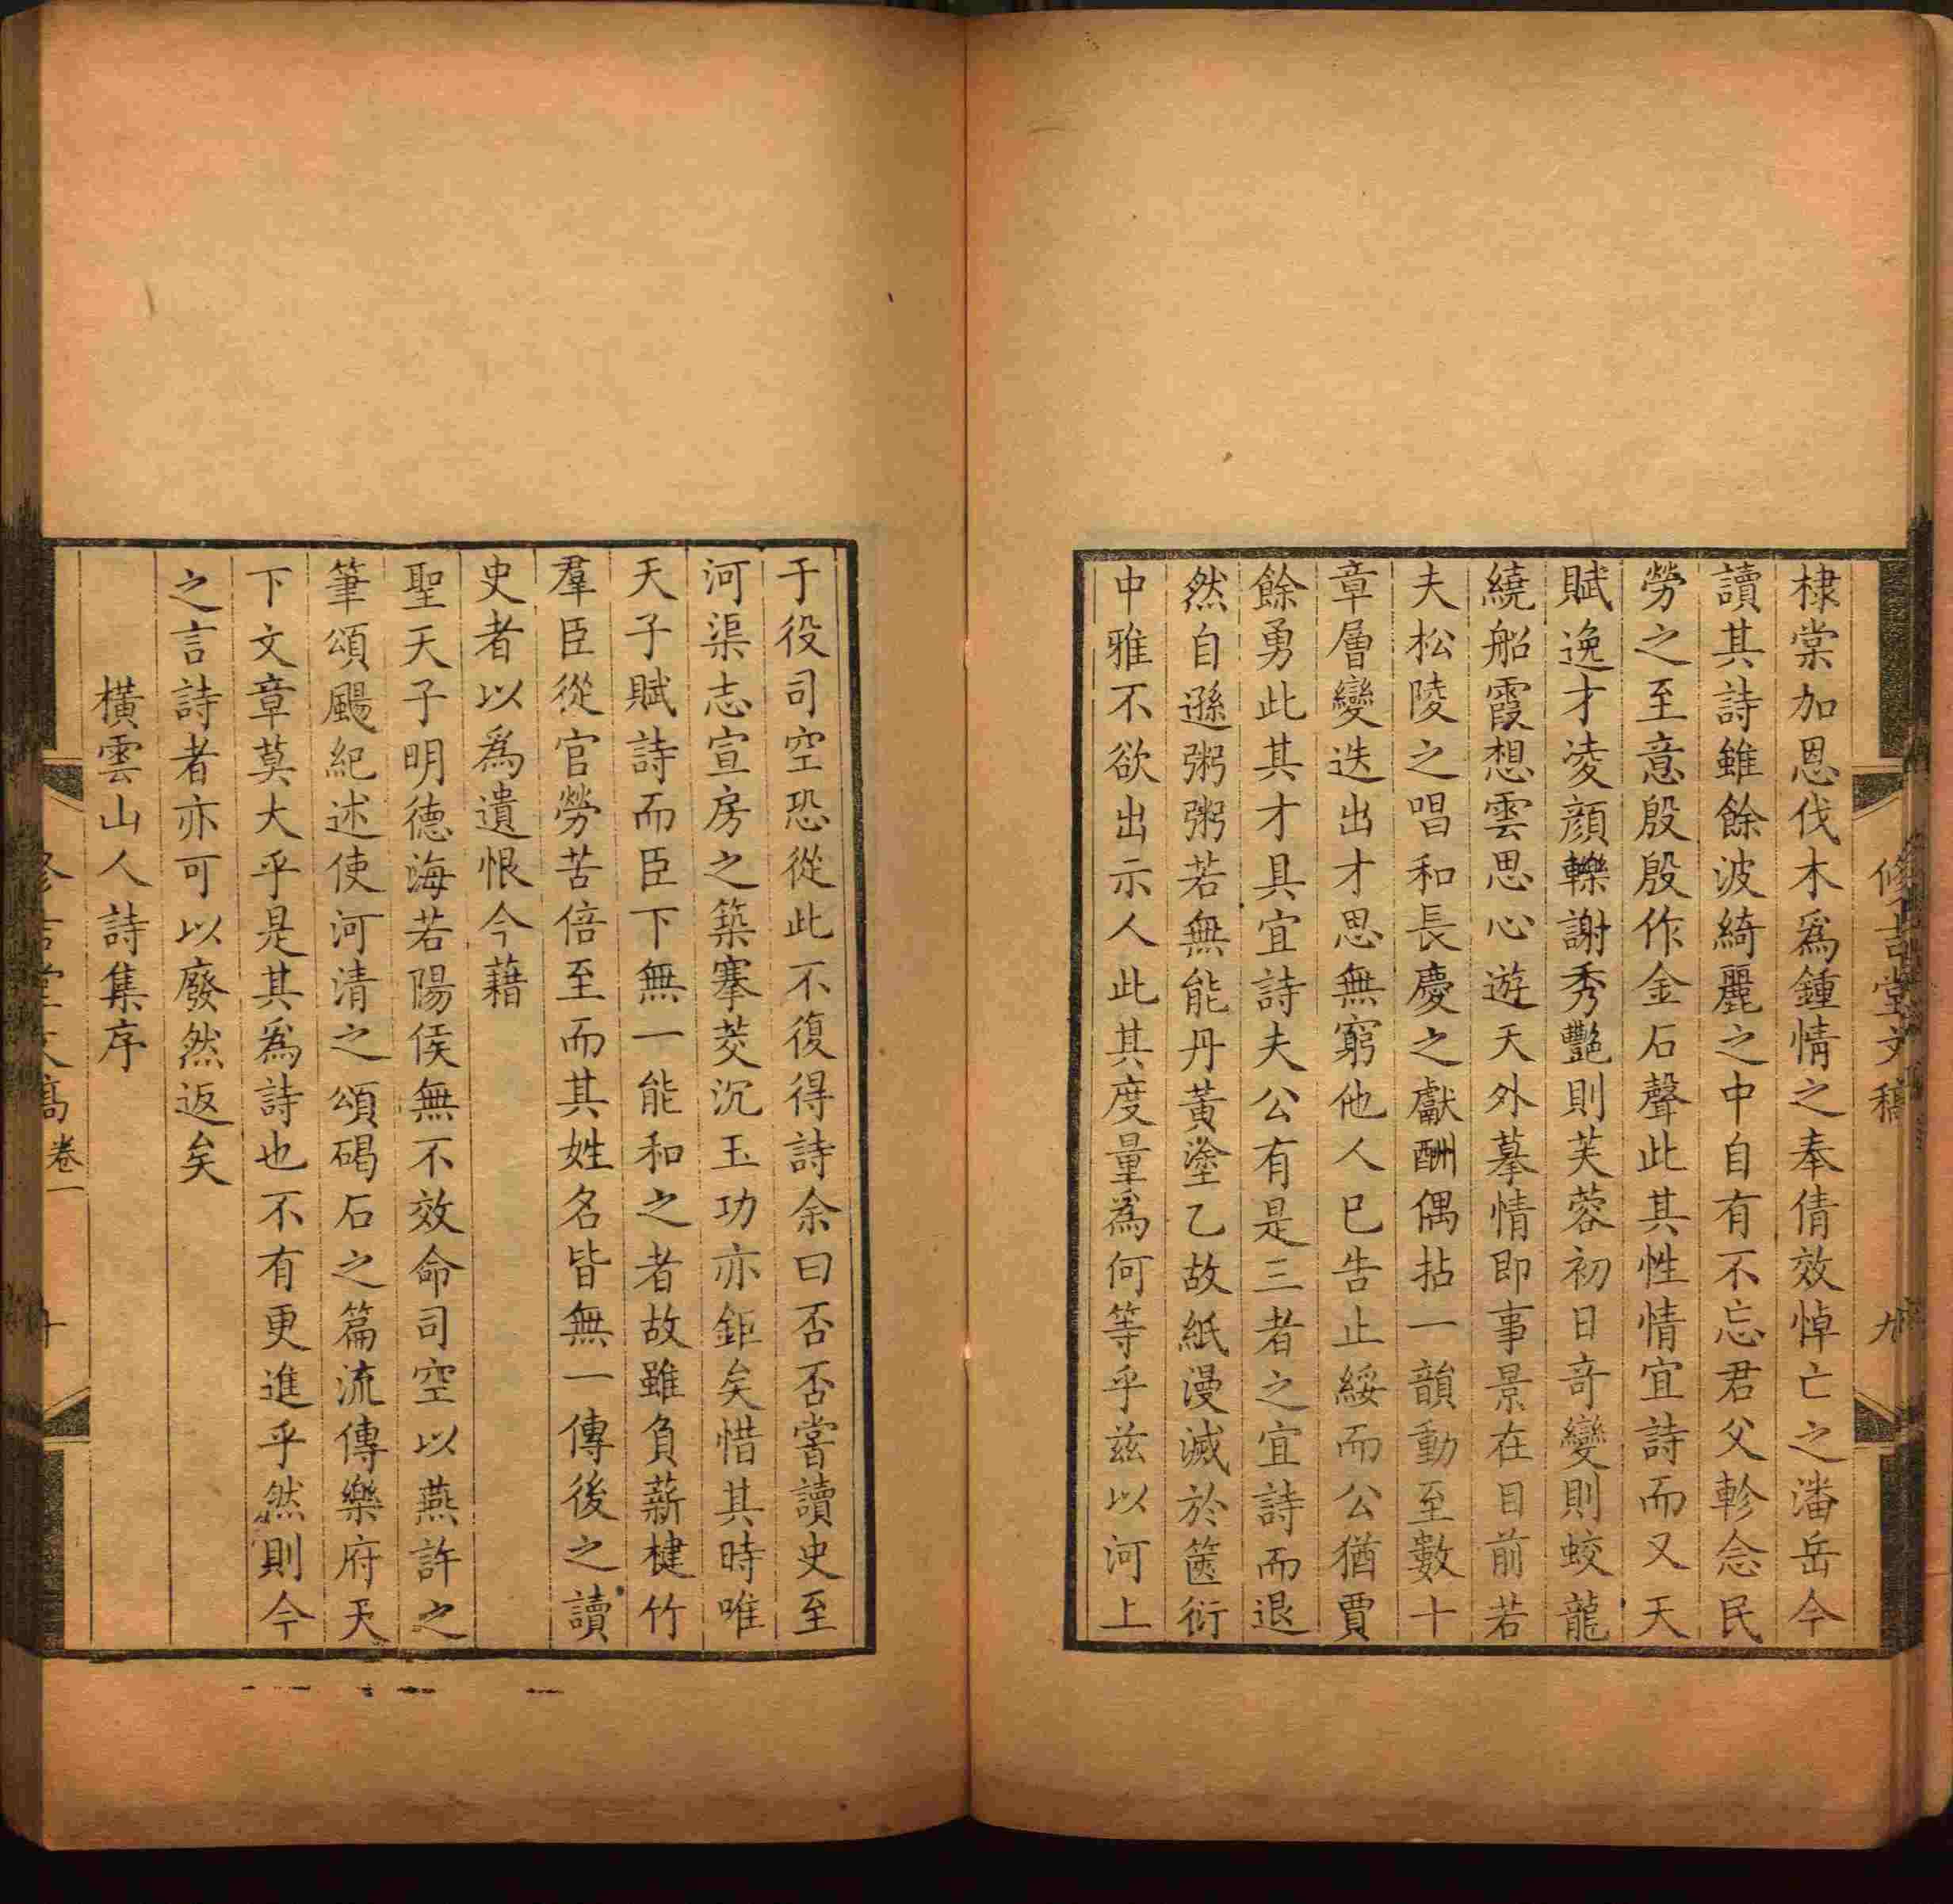 修吉堂文稿
九
棣棠加恩伐木爲鍾情之奉倩效悼亡之潘岳今
讀其詩雖餘波綺麗之中自有不忘君父軫念民
勞之至意殷殷作金石聲此其性情宜詩而又天
賦逸才凌顔轢謝秀艷則芙蓉初日奇變則蛟龍
繞船霞想雲思心遊天外摹情即事景在目前若
夫松陵之唱和長慶之獻酬偶拈一韻動至數十
章層變迭出才思無窮他人巳告止綏而公猶賈
餘勇此其才具宜詩夫公有是三者之宜詩而退
然自遜粥粥若無能丹黃塗乙故紙漫滅於篋衍
中雅不欲出示人此其度量爲何等乎兹以河上
于役司空恐從此不復得詩余曰否否嘗讀史至
河渠志宣房之築搴茭沉玉功亦鉅矣惜其時唯
天子賦詩而臣下無一能和之者故雖負薪楗竹
羣臣從官勞苦倍至而其姓名皆無一傳後之讀
史者以爲遺恨今藉
聖天子明德海若陽侯無不效命司空以燕許之
筆頌颺紀述使河清之頌碣石之篇流傳樂府天
下文章莫大乎是其爲詩也不有更進乎然則今
之言詩者亦可以廢然返矣
橫雲山人詩集序
卷一
十